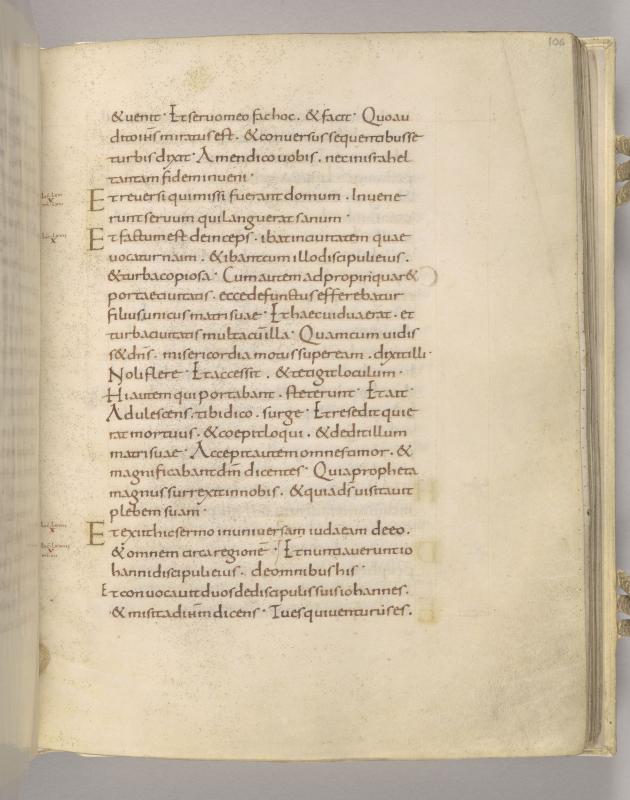 106
& uenit · Et seruo meo fac hoc . & facit · Quo au
dito ihs miratus est . & conuersus sequentibus se
turbis dixit · Amen dico uobis . nec in israhel
tantam fidem inueni ·
Et reuersi qui missi fuerant domum . Inuene
runt seruum qui languerat sanum ·
Et factum est deinceps . ibat in ciuitatem quae
uocatur naim . & ibant cum illo discipuli eius .
& turba copiosa · Cum autem adpropinquar&
portae ciuitatis . ecce defunctus efferebatur
filius unicus matri suae · Et haec uidua erat . et
turba ciuitatis multa cū illa · Quam cum uidis
s& dns . misericordia motus super eam . dixit illi ·
Noli flere · Et accessit . & tetigit loculum ·
Hi autem qui portabant . steterunt · Et ait ·
Adulescens . tibi dico . surge · Et resedit qui e
rat mortuus . & coepit loqui . & dedit illum
matri suae · Accepit autem omnes timor . &
magnificabant dm dicentes · Quia propheta
magnus surrexit in nobis . & quia ds uisitauit
plebem suam ·
Et exiit hic sermo in uniuersam iudaeam de eo .
& omnem circa regionē · Et nuntiauerunt io
hanni discipuli eius . de omnibus his ·
Et conuocauit duos de discipulis suis iohannes .
& misit ad ihm dicens · Tu es qui uenturus es .